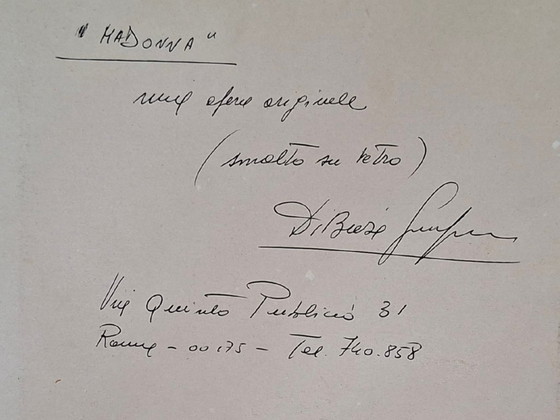 "MADONNA"
mia opera originale
(smalto su vetro)
Di Biase
Via Quinto Publicio 31
Roma - 00175 - Tel. 740.858